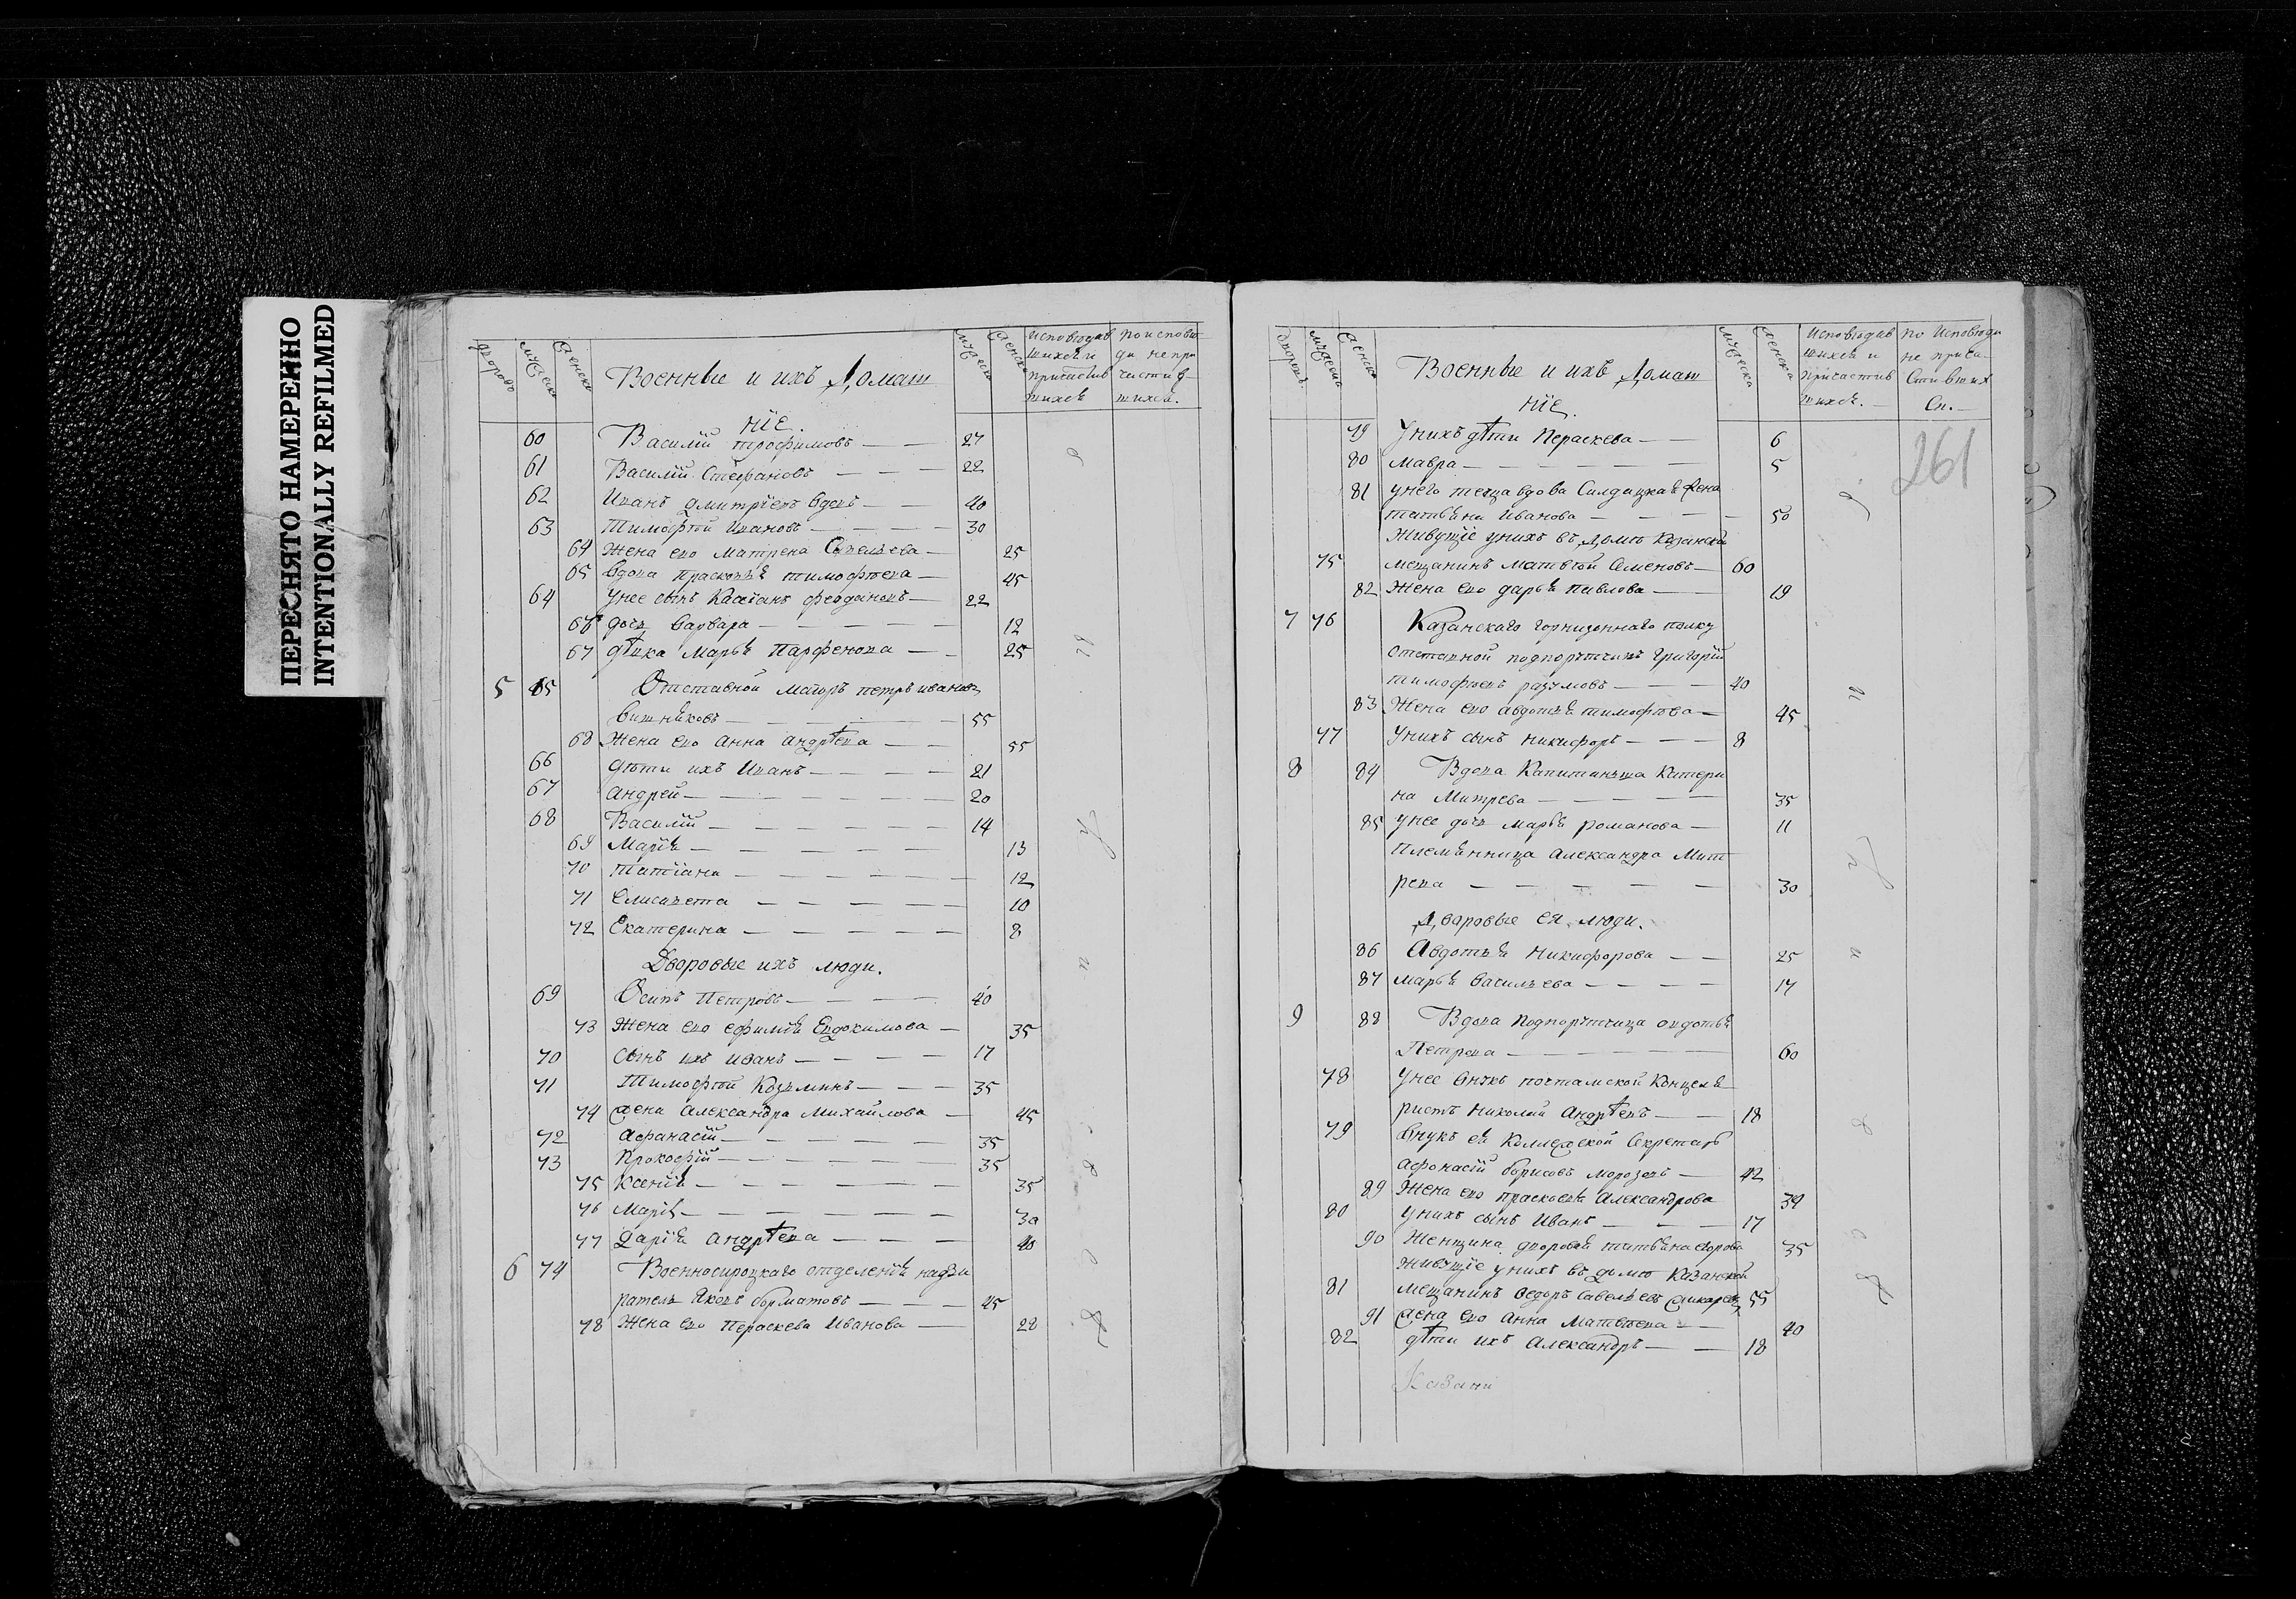 ПЕРЕСНЯТО НАМЕРЕННО
INTENTIONALLY REFILMED
Военные и ихъ Домаш
ніе.
60 Василій трофимовъ 27
61 Василій Стефановъ 22
62 Иванъ дмитріевъ вдовъ 40
63 Тимофѣй Ивановъ 30
64 Жена ево Матрена Савельева 25
65 Вдова Прасковья тимофѣева 45
64 Унее сынъ Касіанъ 22
66 дочь Варвара 12
67 дѣвка Марья Парфенова 25
5 65 Отставной Маіоръ петръ ивановъ
55
68 Жена ево Анна андрѣева 55
66 дѣти ихъ Иванъ 21
67 андрей 20
68 Василій 14
69 Марія 13
70 татіана 12
71 Елисавета 10
72 Екатерина 8
Дворовые ихъ люди.
69 Осипъ Петровъ 40
73 Жена ево ефимія Евдокимова 35
70 Сынъ ихъ иванъ 17
71 Тимофѣй Козьминъ 35
74 жена Александра Михайлова 45
72 Афанасій 35
73 Прокофій 35
75 Ксенія 35
76 Марія 30
77 Дарія андрѣева 40
6 74 Военносироцкаго отделенія надзи
ратель Яковъ борматовъ 45
78 Жена ево Пераскева Иванова 28
Исповѣдав
шихся и
причастив
шихся
по исповѣ
ди не при
частив
шихся.
Военные и ихъ Домаш
ніе.
Исповѣдав
шихся и
причастив
шихся.
по Исповѣди
не прича
стивших
ся.
261
79 Унихъ дѣти Пераскева 6
80 Мавра 5
81 унего теща вдова Салдацкая жена
татьяна Иванова 50
Живущіе унихъ въ домѣ Казанской
75 мещанинъ Матвѣй Семеновъ 60
82 Жена ево дарья павлова 19
7 76 Казанскаго горнизоннаго полку
отставной подпорутчикъ Григорій
тимофѣевъ разумовъ 40
83 Жена ево авдотья тимофѣева 45
77 Унихъ сынъ никифоръ 8
8 84 Вдова Капитанша Катери
на Митрева 35
85 Унее дочь марья романова 11
племянница александра Мит
рева 30
Дворовые ея люди.
86 Авдотья Никифорова 25
87 марья Васильева 17
9 88 Вдова подпорутчица авдотья
Петрова 60
78 Унее внукъ почтамской Канцеля
ристъ Николай Андрѣевъ 18
79 Внукъ ея Колежской Секретарь
афонасій борисовъ морозовъ 42
89 Жена ево прасковья Александрова 39
80 Унихъ сынъ Иванъ 17
90 Женщина дворовая татьяна 35
Живущіе унихъ въ домѣ Казанской
81 мещанинъ Федоръ Савельевъ 55
91 жена ево Анна Матвѣева 40
82 дѣти ихъ Александръ 18
Казани